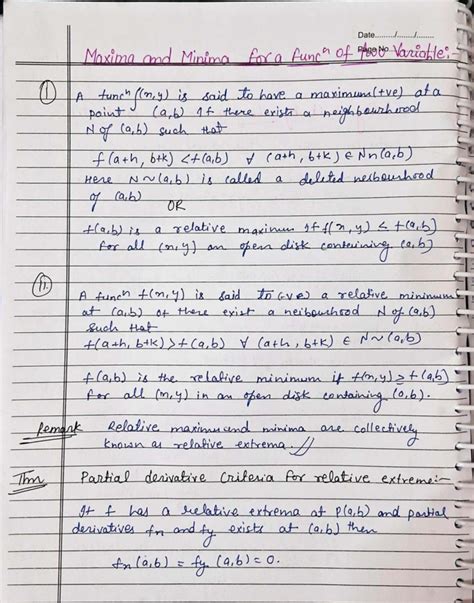 Date......../......../........
Page No
Maxima and Minima for a funcⁿ of two Variable:-
(I) A funcⁿ f(x,y) is said to have a maximum(+ve) at a
point (a,b) If there exists a neighbourhood
N of (a,b) such that
f(a+h, b+k) < f(a,b) ∀ (a+h, b+k) ∈ Nn(a,b)
Here N~(a,b) is called a deleted neibourhood
of (a,b)
OR
f(a,b) is a relative maximum If f(x,y) ≤ f(a,b)
for all (x,y) an open disk containing (a,b)
(II.)
A funcⁿ f(x,y) is said to (-ve) a relative minimum
at (a,b) of there exist a neibourhood N of (a,b)
such that
f(a+h, b+k) > f(a,b) ∀ (a+h, b+k) ∈ N~(a,b)
f(a,b) is the relative minimum if f(x,y) ≥ f(a,b)
for all (x,y) in an open disk containing (a,b).
Remark Relative maximum and minima are collectively
known as relative extrema.//
Thm Partial derivative Criteria for relative extreme:-
If f has a relative extrema at P(a,b) and partial
derivatives fx and fy exists at (a,b) then
fx(a,b) = fy (a,b) = 0.